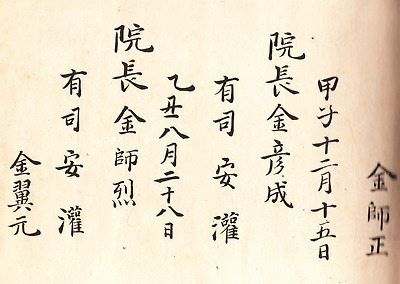 金師正
甲子十二月十五日
院長金彦成
有司安灌
乙丑八月二十八日
院長金師烈
有司安灌
金翼元